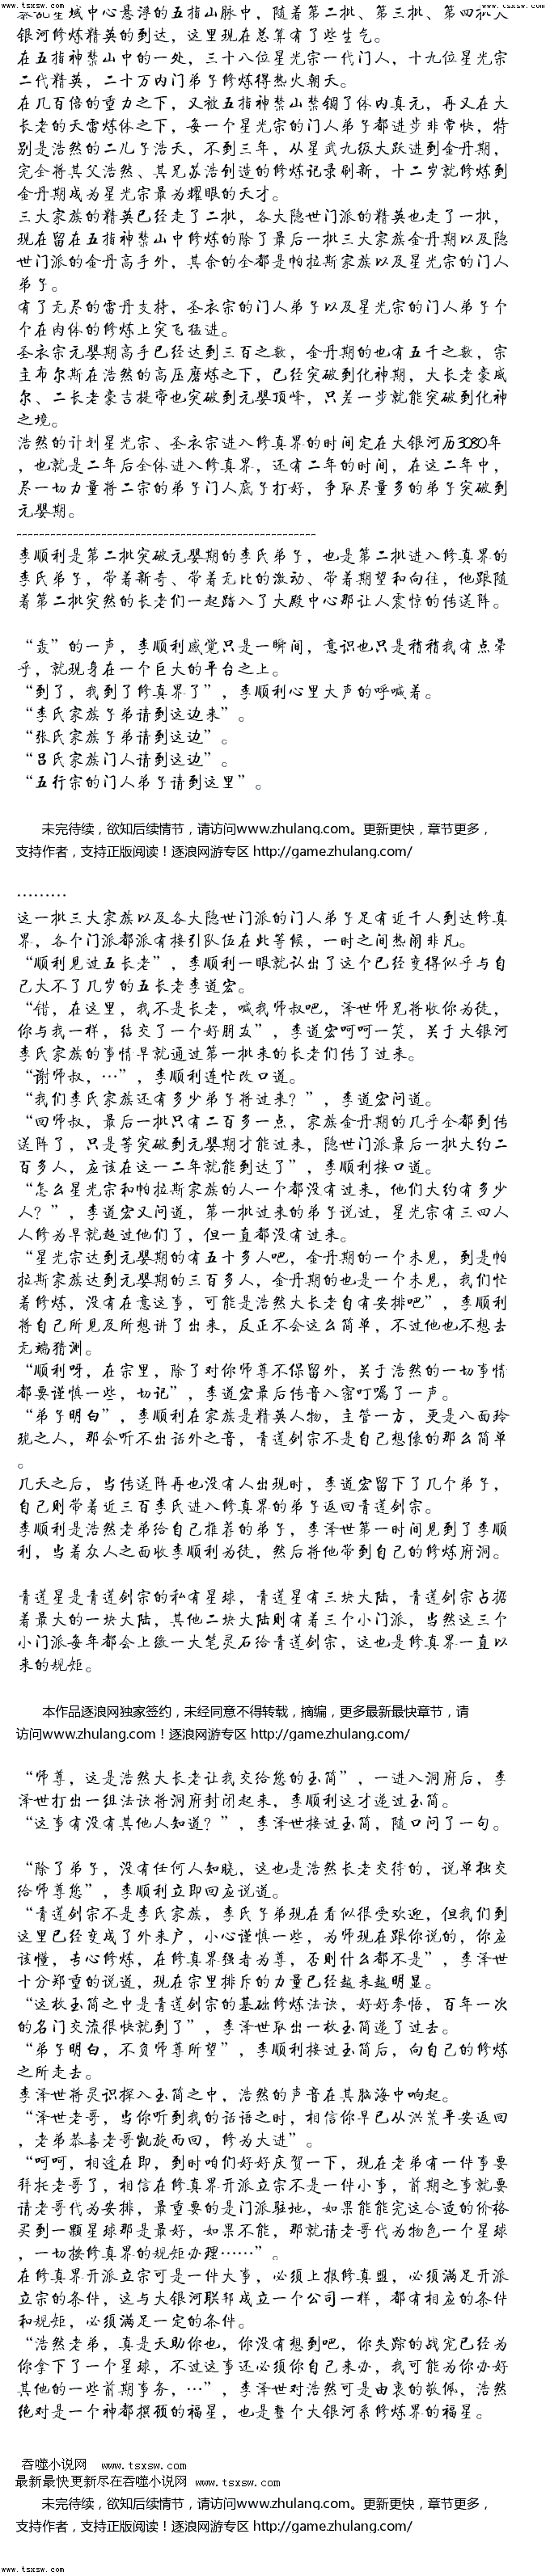 www.tsxsw.com www.tsxsw.com
黎乱星域中心悬浮的五指山脉中，随着第二批、第三批、第四批大
银河修炼精英的到达，这里现在总算有了些生气。
在五指神禁山中的一处，三十八位星光宗一代门人，十九位星光宗
二代精英，二十万内门弟子修炼得热火朝天。
在几百倍的重力之下，又被五指神禁山禁锢了体内真元，再又在大
长老的天雷炼体之下，每一个星光宗的门人弟子都进步非常快，特
别是浩然的二儿子浩天，不到三年，从星武九级大跃进到金丹期，
完全将其父浩然、其兄苏浩创造的修炼记录刷新，十二岁就修炼到
金丹期成为星光宗最为耀眼的天才。
三大家族的精英已经走了二批，各大隐世门派的精英也走了一批，
现在留在五指神禁山中修炼的除了最后一批三大家族金丹期以及隐
世门派的金丹高手外，其余的全都是帕拉斯家族以及星光宗的门人
弟子。
有了无尽的雷丹支持，圣衣宗的门人弟子以及星光宗的门人弟子个
个在肉体的修炼上突飞猛进。
圣衣宗元婴期高手已经达到三百之数，金丹期的也有五千之数，宗
主布尔斯在浩然的高压磨炼之下，已经突破到化神期，大长老豪威
尔、二长老豪吉提帝也突破到元婴顶峰，只差一步就能突破到化神
之境。
浩然的计划星光宗、圣衣宗进入修真界的时间定在大银河历3080年
，也就是二年后全体进入修真界，还有二年的时间，在这二年中，
尽一切力量将二宗的弟子门人底子打好，争取尽量多的弟子突破到
元婴期。
------------------------------------------------------
李顺利是第二批突破元婴期的李氏弟子，也是第二批进入修真界的
李氏弟子，带着新奇、带着无比的激动、带着期望和向往，他跟随
着第二批突然的长老们一起踏入了大殿中心那让人震惊的传送阵。
“轰”的一声，李顺利感觉只是一瞬间，意识也只是稍稍我有点晕
乎，就现身在一个巨大的平台之上。
“到了，我到了修真界了”，李顺利心里大声的呼喊着。
“李氏家族子弟请到这边来”。
“张氏家族子弟请到这边”。
“吕氏家族门人请到这边”。
“五行宗的门人弟子请到这里”。
未完待续，欲知后续情节，请访问www.zhulang.com。更新更快，章节更多，
支持作者，支持正版阅读！逐浪网游专区 http://game.zhulang.com/
………
这一批三大家族以及各大隐世门派的门人弟子足有近千人到达修真
界，各个门派都派有接引队伍在此等候，一时之间热闹非凡。
“顺利见过五长老”，李顺利一眼就认出了这个已经变得似乎与自
己大不了几岁的五长老李道宏。
“错，在这里，我不是长老，喊我师叔吧，泽世师兄将收你为徒，
你与我一样，结交了一个好朋友”，李道宏呵呵一笑，关于大银河
李氏家族的事情早就通过第一批来的长老们传了过来。
“谢师叔，…”，李顺利连忙改口道。
“我们李氏家族还有多少弟子将过来？”，李道宏问道。
“回师叔，最后一批只有二百多一点，家族金丹期的几乎全都到传
送阵了，只是等突破到元婴期才能过来，隐世门派最后一批大约二
百多人，应该在这一二年就能到达了”，李顺利接口道。
“怎么星光宗和帕拉斯家族的人一个都没有过来，他们大约有多少
人？”，李道宏又问道，第一批过来的弟子说过，星光宗有三四人
人修为早就超过他们了，但一直都没有过来。
“星光宗达到元婴期的有五十多人吧，金丹期的一个未见，到是帕
拉斯家族达到元婴期的三百多人，金丹期的也是一个未见，我们忙
着修炼，没有在意这事，可能是浩然大长老自有安排吧”，李顺利
将自己所见及所想讲了出来，反正不会这么简单，不过他也不想去
无端猜测。
“顺利呀，在宗里，除了对你师尊不保留外，关于浩然的一切事情
都要谨慎一些，切记”，李道宏最后传音入密叮嘱了一声。
“弟子明白”，李顺利在家族是精英人物，主管一方，更是八面玲
珑之人，那会听不出话外之音，青莲剑宗不是自己想像的那么简单
。
几天之后，当传送阵再也没有人出现时，李道宏留下了几个弟子，
自己则带着近三百李氏进入修真界的弟子返回青莲剑宗。
李顺利是浩然老弟给自己推荐的弟子，李泽世第一时间见到了李顺
利，当着众人之面收李顺利为徒，然后将他带到自己的修炼府洞。
青莲星是青莲剑宗的私有星球，青莲星有三块大陆，青莲剑宗占据
着最大的一块大陆，其他二块大陆则有着三个小门派，当然这三个
小门派每年都会上缴一大笔灵石给青莲剑宗，这也是修真界一直以
来的规矩。
本作品逐浪网独家签约，未经同意不得转载，摘编，更多最新最快章节，请
访问www.zhulang.com！逐浪网游专区 http://game.zhulang.com/
“师尊，这是浩然大长老让我交给您的玉简”，一进入洞府后，李
泽世打出一组法诀将洞府封闭起来，李顺利这才递过玉简。
“这事有没有其他人知道？”，李泽世接过玉简，随口问了一句。
“除了弟子，没有任何人知晓，这也是浩然长老交待的，说单独交
给师尊您”，李顺利立即回应说道。
“青莲剑宗不是李氏家族，李氏子弟现在看似很受欢迎，但我们到
这里已经变成了外来户，小心谨慎一些，为师现在跟你说的，你应
该懂，专心修炼，在修真界强者为尊，否则什么都不是”，李泽世
十分郑重的说道，现在宗里排斥的力量已经越来越明显。
“这枚玉简之中是青莲剑宗的基础修炼法诀，好好参悟，百年一次
的名门交流很快就到了”，李泽世取出一枚玉简递了过去。
“弟子明白，不负师尊所望”，李顺利接过玉简后，向自己的修炼
之所走去。
李泽世将灵识探入玉简之中，浩然的声音在其脑海中响起。
“泽世老哥，当你听到我的话语之时，相信你早已从洪荒平安返回
，老弟恭喜老哥凯旋而回，修为大进”。
“呵呵，相逢在即，到时咱们好好庆贺一下，现在老弟有一件事要
拜托老哥了，相信在修真界开派立宗不是一件小事，前期之事就要
请老哥代为安排，最重要的是门派驻地，如果能能完这合适的价格
买到一颗星球那是最好，如果不能，那就请老哥代为物色一个星球
，一切按修真界的规矩办理……”。
在修真界开派立宗可是一件大事，必须上报修真盟，必须满足开派
立宗的条件，这与大银河联邦成立一个公司一样，都有相应的条件
和规矩，必须满足一定的条件。
“浩然老弟，真是天助你也，你没有想到吧，你失踪的战宠已经为
你拿下了一个星球，不过这事还必须你自己来办，我可能为你办好
其他的一些前期事务，…”，李泽世对浩然可是由衷的敬佩，浩然
绝对是一个神都撰顾的福星，也是整个大银河系修炼界的福星。
吞噬小说网 www.tsxsw.com
最新最快更新尽在吞噬小说网 www.tsxsw.com
未完待续，欲知后续情节，请访问www.zhulang.com。更新更快，章节更多，
支持作者，支持正版阅读！逐浪网游专区 http://game.zhulang.com/
www.tsxsw.com